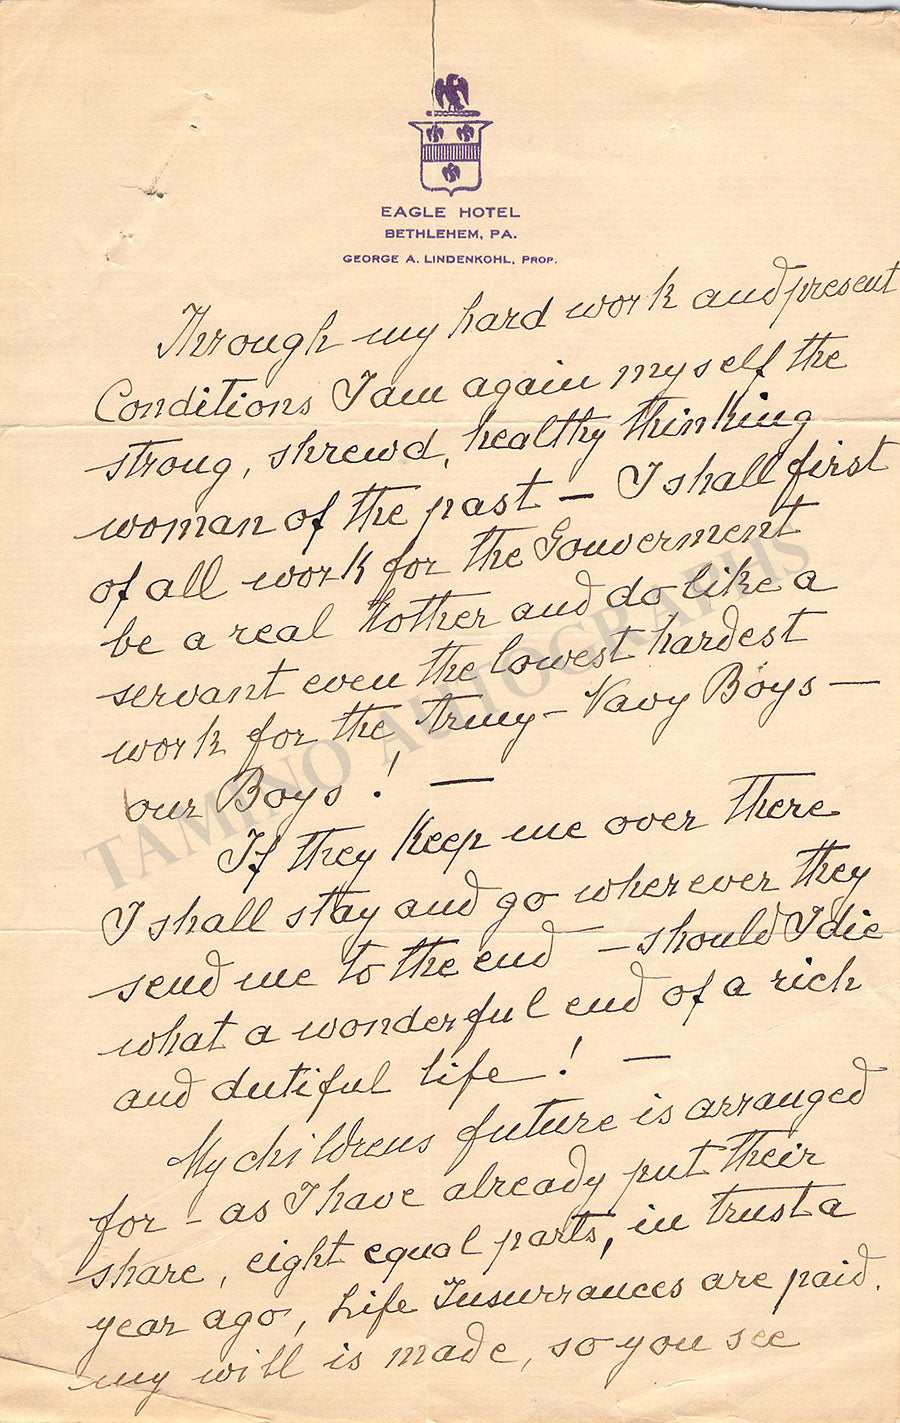 EAGLE HOTEL
BETHLEHEM, PA.
GEORGE A. LINDENKOHL, PROP.
Through my hard work and present
Conditions I am again myself the
strong, shrewd, healthy thinking
woman of the past — I shall first
of all work for the Gouverment
be a real Mother and do like a
servant even the lowest hardest
work for the Army - Navy Boys —
our Boys! —
If they keep me over there
I shall stay and go wherever they
send me to the end — should I die
what a wonderful end of a rich
and dutiful life! —
My childrens future is arranged
for - as I have already put their
share, eight equal parts, in trust a
year ago, Life Insurrances are paid.
my will is made, so you see
TAMINO AUTOGRAPHS